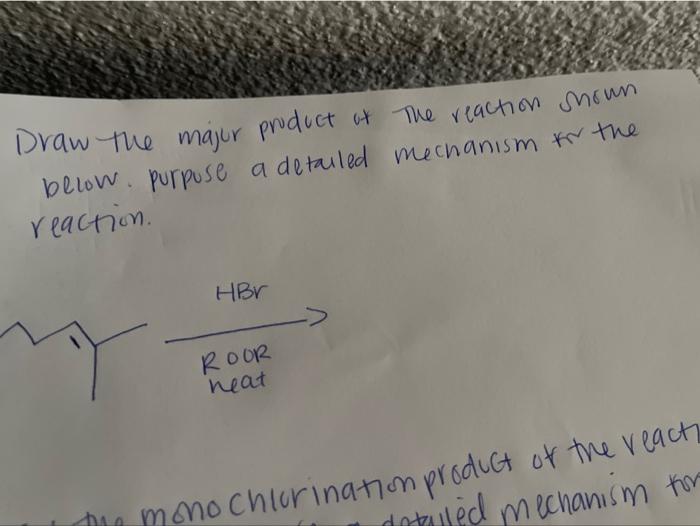 Draw the major product of The reaction shown
below. purpose a detailed mechanism for the
reaction.
HBr
ROOR
heat
the mono chlorination product of the reacti
detailed mechanism for